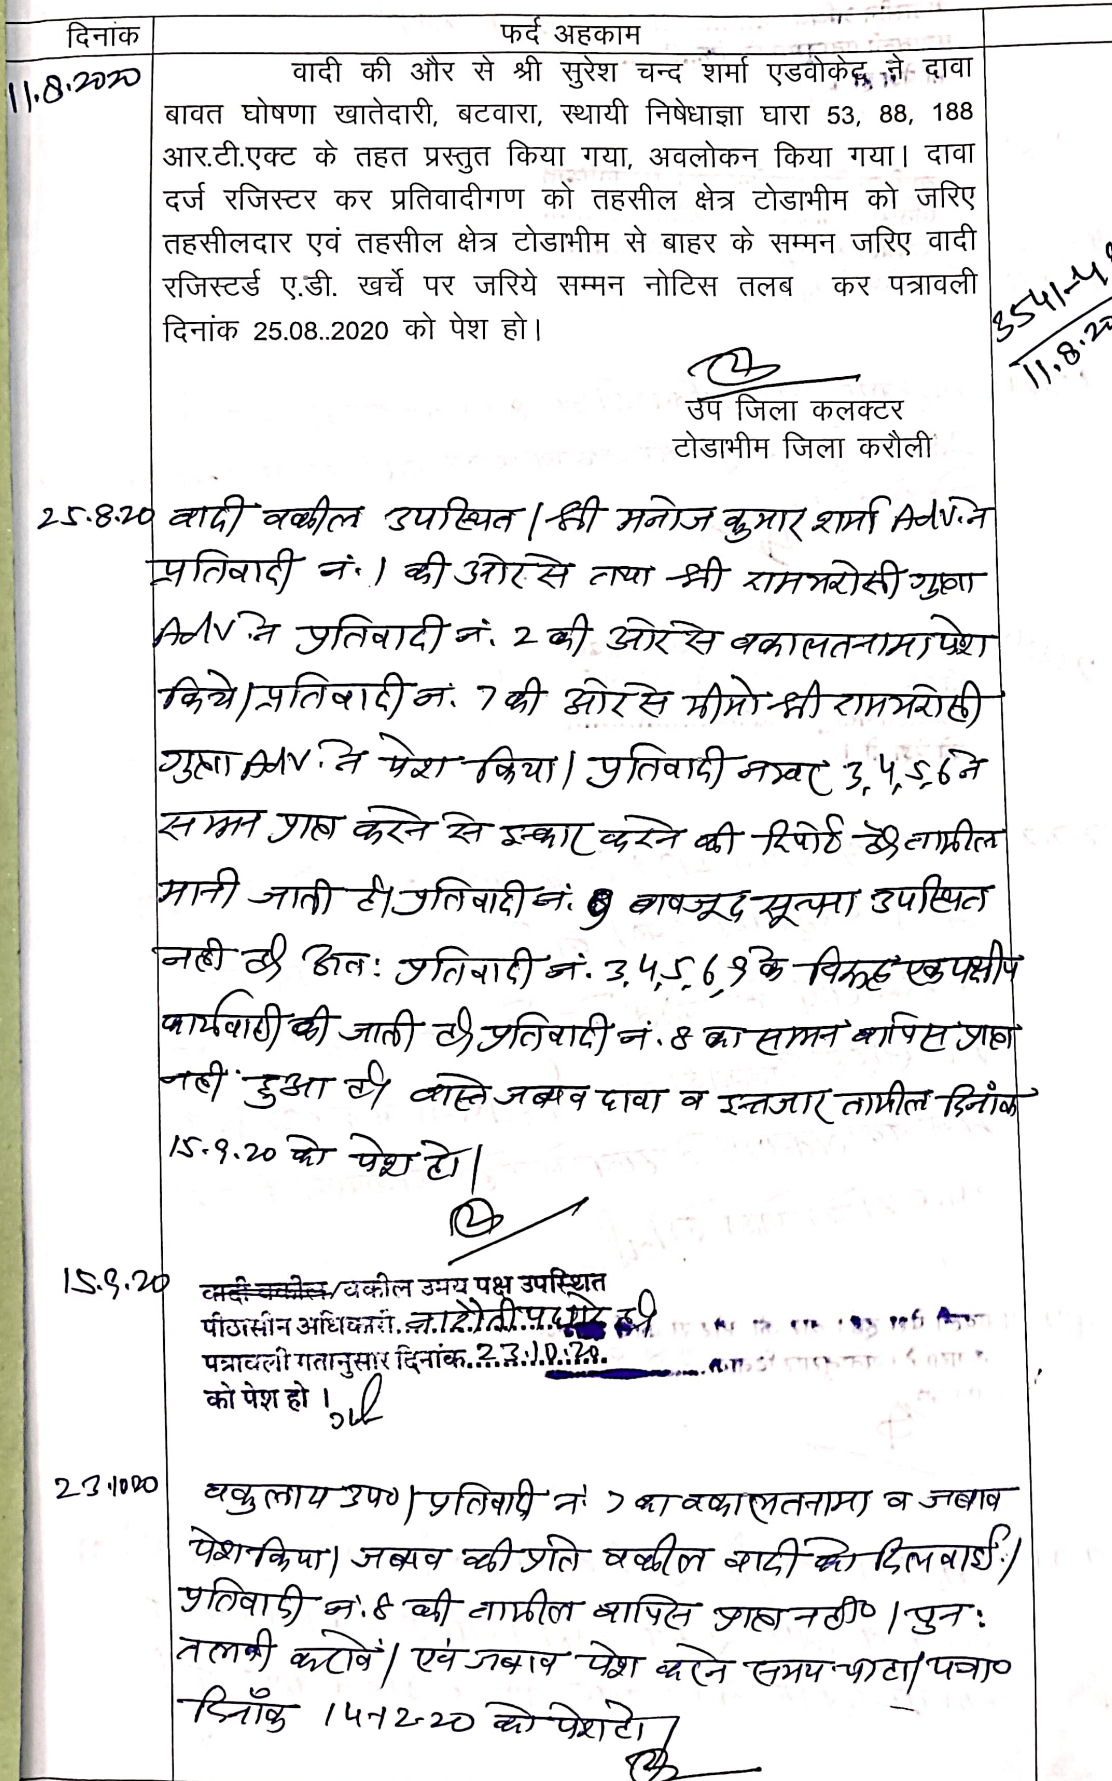 दिनांक फर्द अहकाम
11.8.2020 वादी की और से श्री सुरेश चन्द शर्मा एडवोकेट ने दावा
बावत घोषणा खातेदारी, बटवारा, स्थायी निषेधाज्ञा घारा 53, 88, 188
आर.टी.एक्ट के तहत प्रस्तुत किया गया, अवलोकन किया गया। दावा
दर्ज रजिस्टर कर प्रतिवादीगण को तहसील क्षेत्र टोडाभीम को जरिए
तहसीलदार एवं तहसील क्षेत्र टोडाभीम से बाहर के सम्मन जरिए वादी
रजिस्टर्ड ए.डी. खर्चे पर जरिये सम्मन नोटिस तलब कर पत्रावली
दिनांक 25.08..2020 को पेश हो।
3541-4
11.8.20
उप जिला कलक्टर
टोडाभीम जिला करौली
25.8.20 वादी वकील उपस्थित। श्री मनोज कुमार शर्मा Adv. ने
प्रतिवादी नं. 1 की ओर से तथा श्री रामभरोसी गुप्ता
Adv. ने प्रतिवादी नं. 2 की ओर से वकालतनामा पेश
किये। प्रतिवादी नं. 7 की ओर से मीमो श्री रामभरोसी
गुप्ता Adv. ने पेश किया। प्रतिवादी नम्बर 3,4,5,6 ने
सम्मन प्राप्त करने से इन्कार करने की रिपोर्ट है। तामील
मानी जाती है। प्रतिवादी नं. 9 बावजूद सूचना उपस्थित
नही है। अतः प्रतिवादी नं. 3,4,5,6,9 के विरूद्ध एक पक्षीय
कार्यवाही की जाती है। प्रतिवादी नं. 8 का सम्मन वापिस प्राप्त
नही हुआ है। वास्ते जबाव दावा व इन्तजार तामील दिनाँक
15.9.20 को पेश हो।
15.9.20 वादी वकील/वकील उभय पक्ष उपस्थित
पीठासीन अधिकारी.. पधारे है।
पत्रावली गतानुसार दिनांक..23.10.20.
को पेश हो।
23.1020 वकुलाय उप०। प्रतिवादी नं. 7 का वकालतनामा व जबाव
पेश किया। जबाव की प्रति वकील वादी को दिलवाई।
प्रतिवादी नं. 8 की तामील वापिस प्राप्त नही०। पुनः
तलबी करावें। एवं जबाव पेश करने समय चाहा। पत्रा०
दिनाँक 14-12-20 को पेश हो।